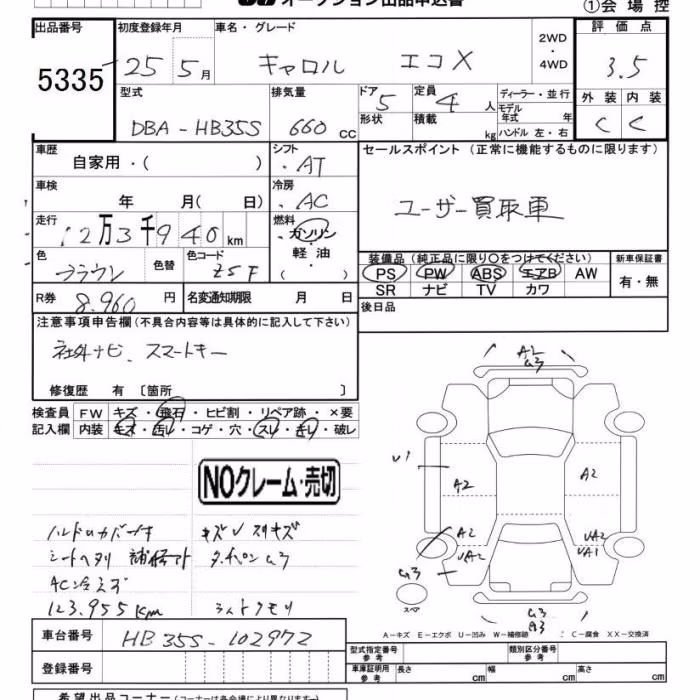 オークション出品申込書
①会場控
出品番号 初度登録年月 車名・グレード 2WD・4WD 評価点
5335 25 5月 キャロル エコX 3.5
型式 排気量 ドア 定員 ディーラー・並行 外装 内装
DBA-HB35S 660cc 5 4人 モデル年式 年 C C
形状 積載 kg ハンドル 左・右
車歴 シフト セールスポイント(正常に機能するものに限ります)
自家用・( ) ・AT
車検 冷房
年 月( 日) ・AC ユーザー買取車
走行 燃料
12万3千940km ・ガソリン・軽油・( )
色 色替 色コード 装備品(純正品に限り○をつけてください) 新車保証書
ブラウン Z5F PS PW ABS エアB AW 有・無
SR ナビ TV カワ
R券 8.960円 名変通知期限 月 日 後日品
注意事項申告欄(不具合内容等は具体的に記入して下さい)
社外ナビ、スマートキー
修復歴 有 〔箇所 〕
検査員 FW キズ・飛石・ヒビ割・リペア跡・×要
記入欄 内装 キズ・汚レ・コゲ・穴・スレ・キレ・破レ
NOクレーム・売切
シートヘタリ
AC冷えず
123,955Km
A2 G3
U1
A2
A2
A2
UA2
UA2
UA1
G3
スペア
G3
A-キズ E-エクボ U-凹み W-補修跡 C-腐食 XX-交換済
車台番号 HB35S-102972
登録番号
型式指定番号 参考 類別区分番号 参考
車庫証明用 参考 長さ cm 幅 cm 高さ cm
希望出品コーナー(コーナーは各会場により異なります)